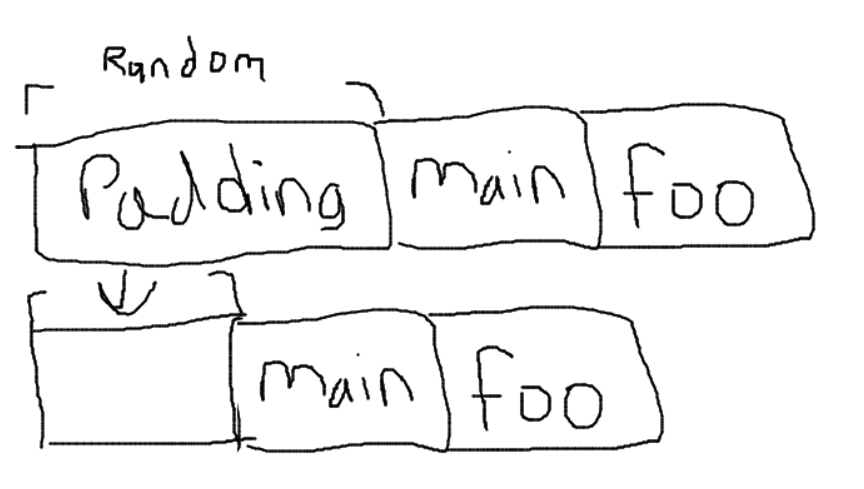 Random
Padding main foo
main foo